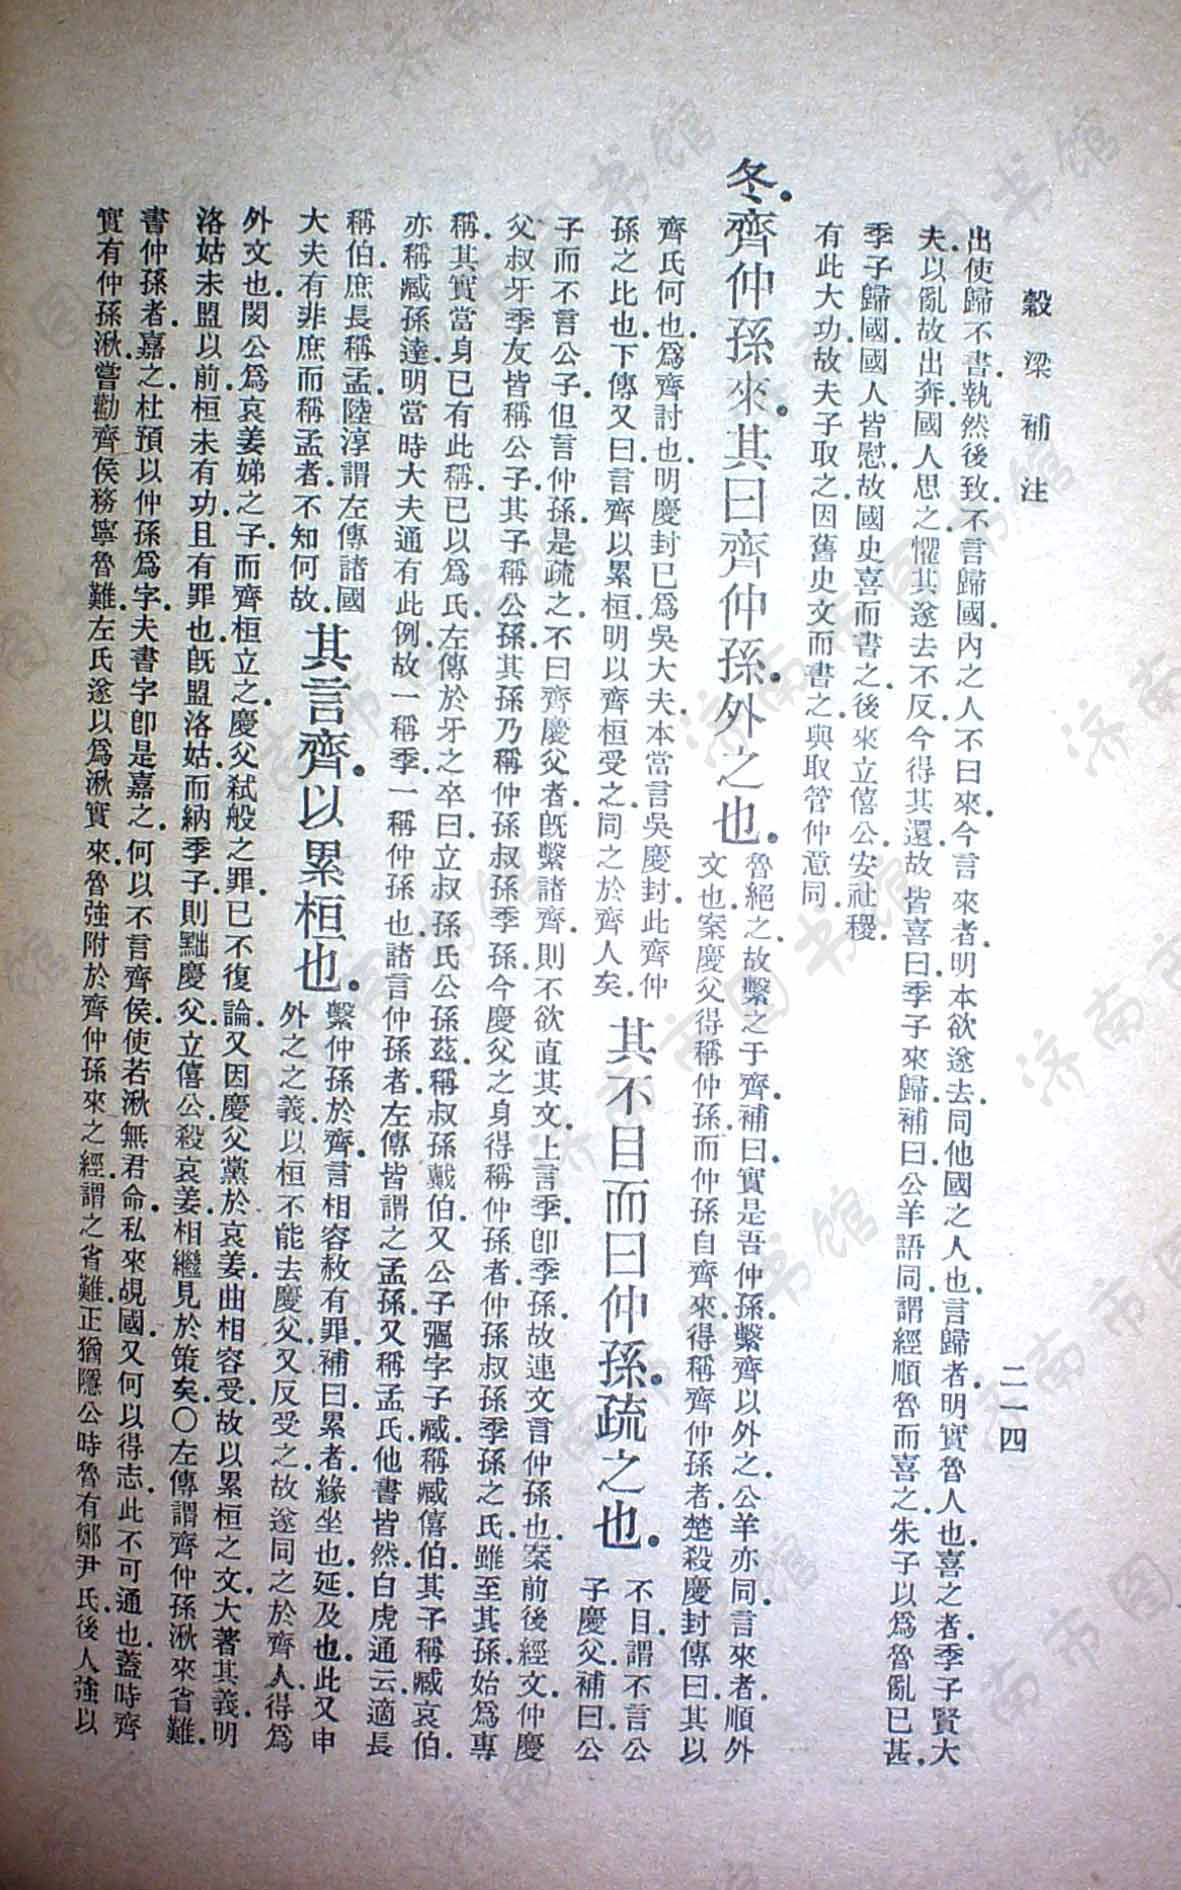 穀梁補注
二一四
出使歸不書執然後致不言歸國內之人不曰來今言來者明本欲遂去同他國之人也言歸者明實魯人也喜之者季子賢大
夫以亂故出奔國人思之懼其遂去不反今得其還故皆喜曰季子來歸補曰公羊語同謂經順魯而喜之朱子以爲魯亂已甚
季子歸國國人皆慰故國史喜而書之後來立僖公安社稷
有此大功故夫子取之因舊史文而書之與取管仲意同
冬齊仲孫來其曰齊仲孫外之也
魯絕之故繫之于齊補曰實是吾仲孫繫齊以外之公羊亦同言來者順外
文也案慶父得稱仲孫而仲孫自齊來得稱齊仲孫者楚殺慶封傳曰其以
齊氏何也爲齊討也明慶封已爲吳大夫本當言吳慶封此齊仲
孫之比也下傳又曰言齊以累桓明以齊桓受之同之於齊人矣
其不目而曰仲孫疏之也
不目謂不言公
子慶父補曰公
子而不言公子但言仲孫是疏之不曰齊慶父者旣繫諸齊則不欲直其文上言季卽季孫故連文言仲孫也案前後經文仲慶
父叔牙季友皆稱公子其子稱公孫其孫乃稱仲孫叔孫季孫今慶父之身得稱仲孫者仲孫叔孫季孫之氏雖至其孫始爲專
稱其實當身已有此稱已以爲氏左傳於牙之卒曰立叔孫氏公孫茲稱叔孫戴伯又公子彄字子臧稱臧僖伯其子稱臧哀伯
亦稱臧孫達明當時大夫通有此例故一稱季一稱仲孫也諸言仲孫者左傳皆謂之孟孫又稱孟氏他書皆然白虎通云適長
稱伯庶長稱孟陸淳謂左傳諸國
大夫有非庶而稱孟者不知何故
其言齊以累桓也
繫仲孫於齊言相容赦有罪補曰累者緣坐也延及也此又申
外之之義以桓不能去慶父又反受之故遂同之於齊人得爲
外文也閔公爲哀姜娣之子而齊桓立之慶父弑般之罪已不復論又因慶父黨於哀姜曲相容受故以累桓之文大著其義明
洛姑未盟以前桓未有功且有罪也旣盟洛姑而納季子則黜慶父立僖公殺哀姜相繼見於策矣○左傳謂齊仲孫湫來省難
書仲孫者嘉之杜預以仲孫爲字夫書字卽是嘉之何以不言齊侯使若湫無君命私來覘國又何以得志此不可通也蓋時齊
實有仲孫湫嘗勸齊侯務寧魯難左氏遂以爲湫實來魯強附於齊仲孫來之經謂之省難正猶隱公時魯有鄭尹氏後人強以